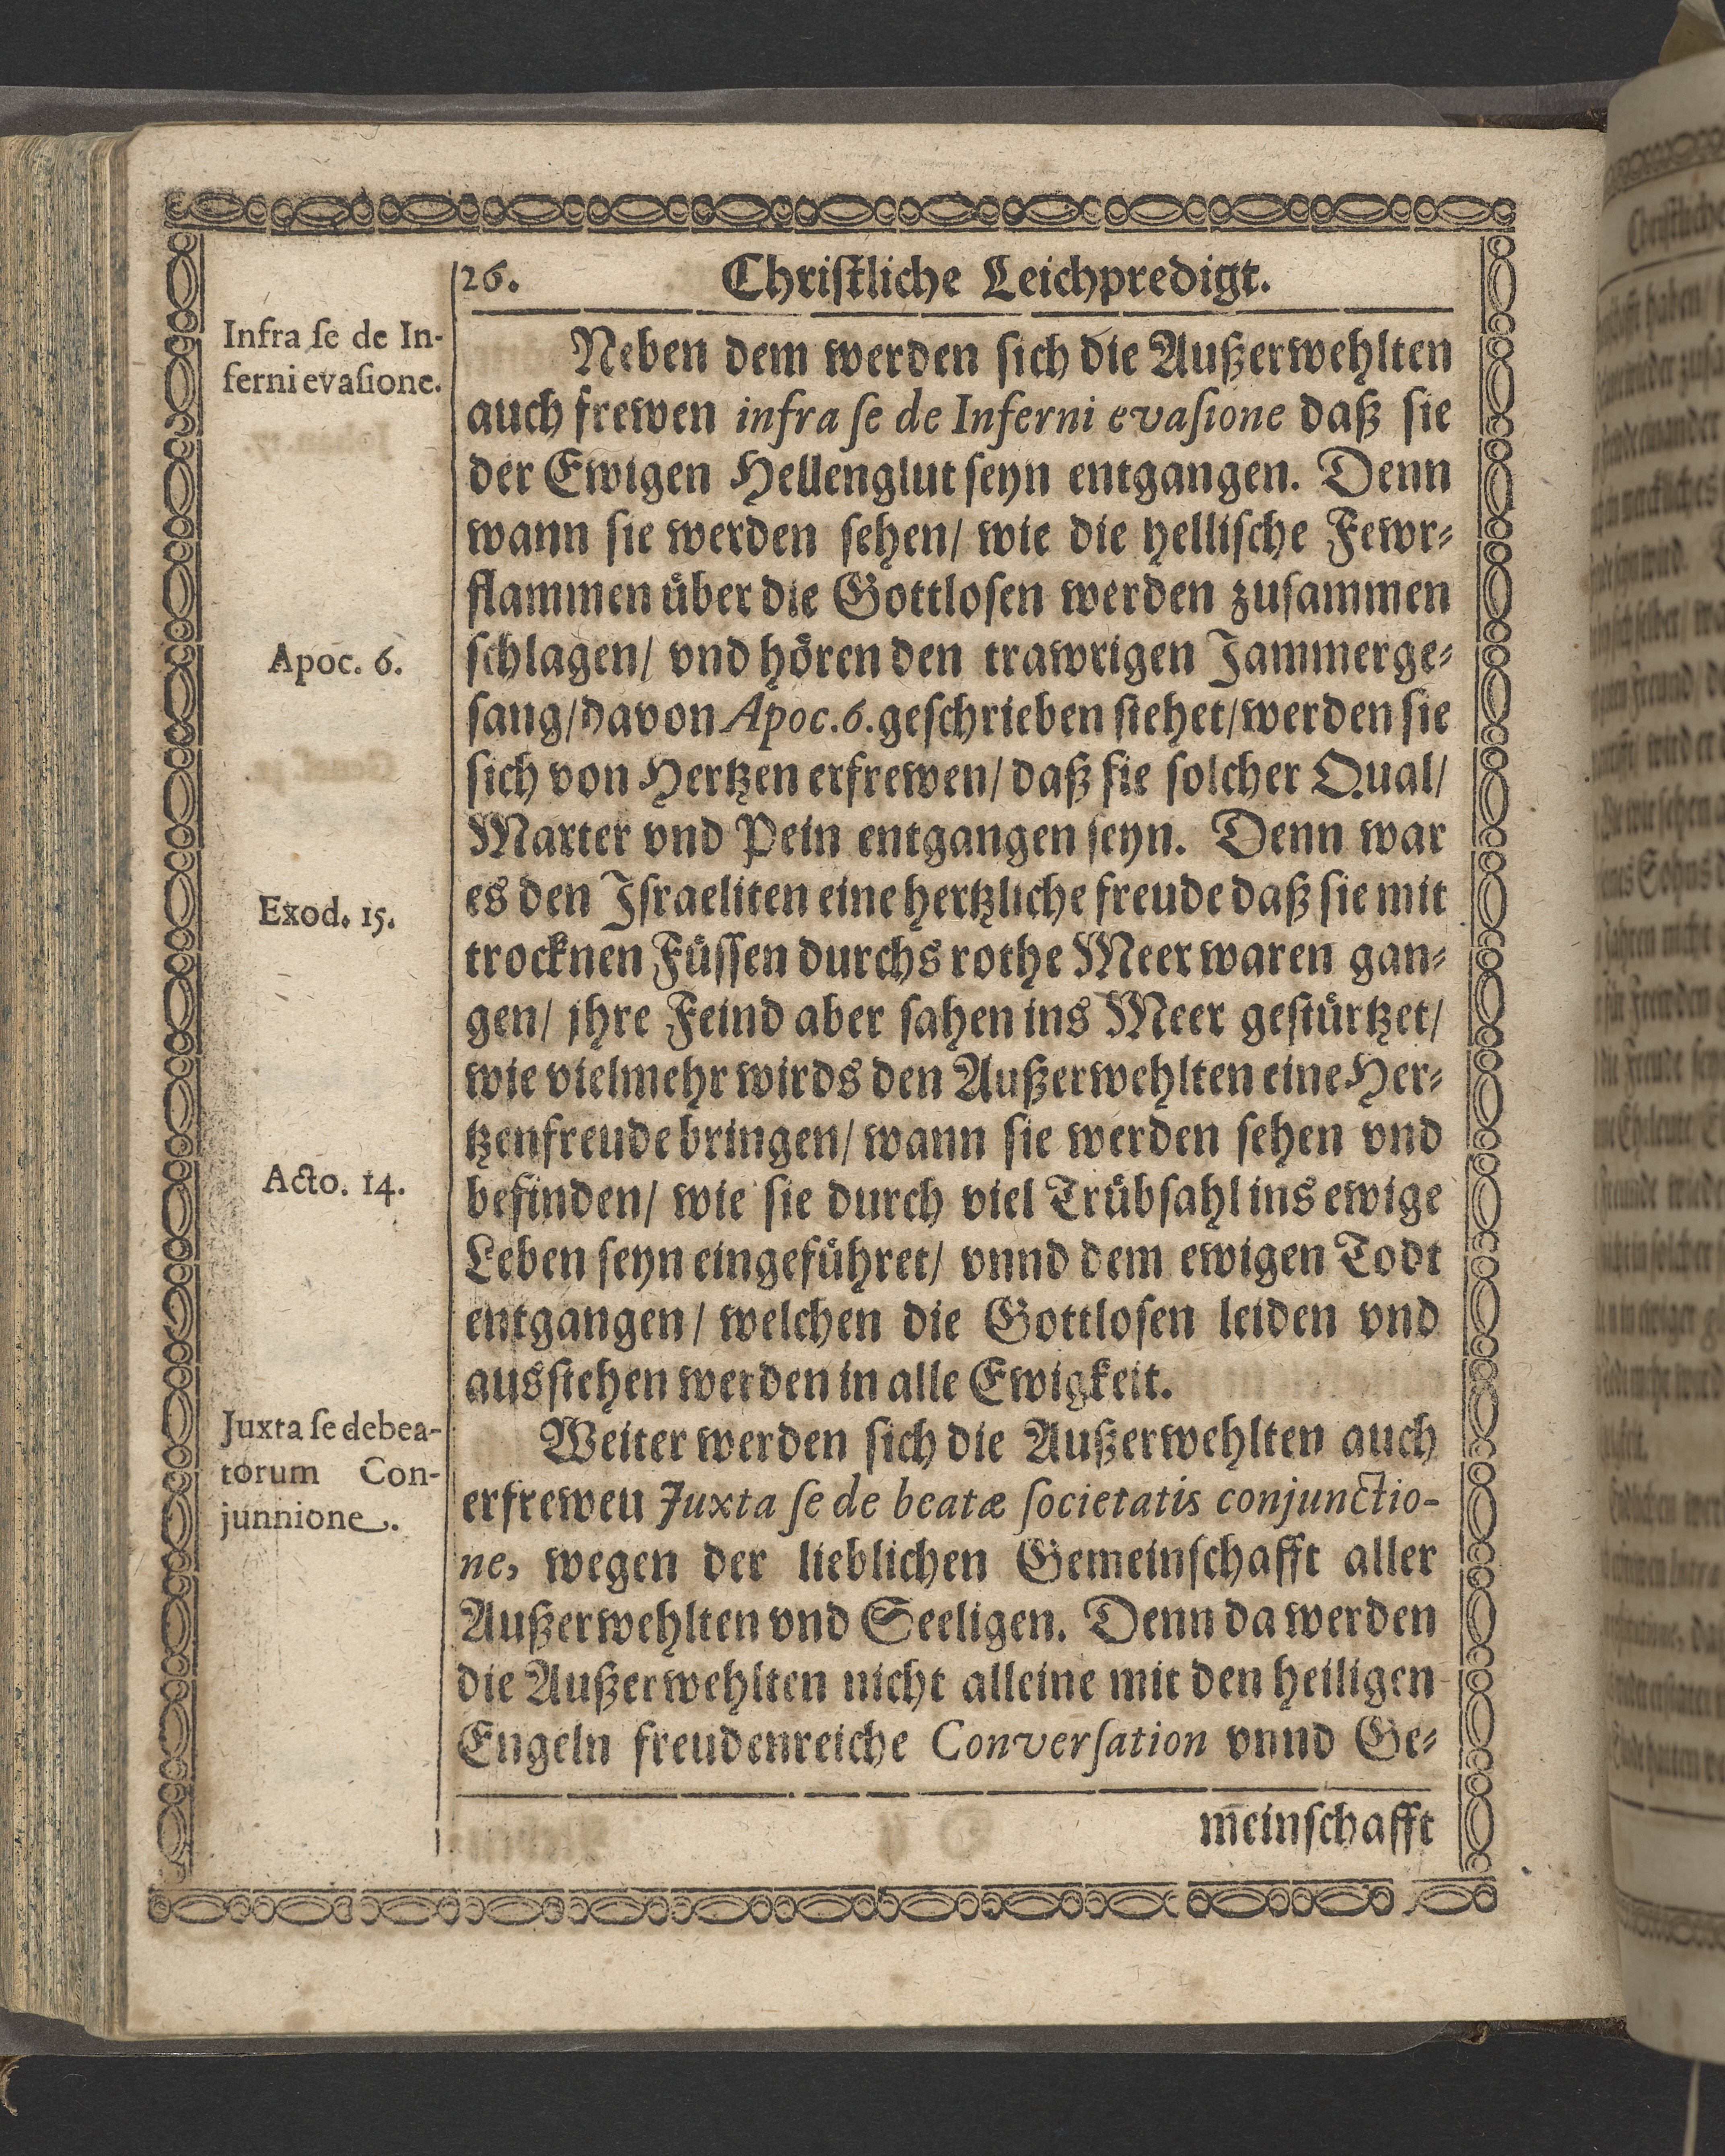 26. Christliche Leichpredigt.
Infra ſe de In-
ferni evaſione.
Neben dem werden ſich die Außerwehlten
auch frewen infra ſe de Inferni evaſione daß ſie
der Ewigen Hellenglut ſeyn entgangen. Denn
wann ſie werden ſehen/ wie die helliſche Fewr-
flammen uͤber die Gottloſen werden zuſammen
Apoc. 6.
ſchlagen/ vnd hoͤren den trawrigen Jammerge-
ſang/davon Apoc.6.geſchrieben ſtehet/werden ſie
ſich von Hertzen erfrewen/ daß ſie ſolcher Qual/
Marter vnd Pein entgangen ſeyn. Denn war
Exod. 15.
es den Iſraeliten eine hertzliche freude daß ſie mit
trocknen Fuͤſſen durchs rothe Meer waren gan-
gen/ jhre Feind aber ſahen ins Meer geſtuͤrtzet/
wie vielmehr wirds den Außerwehlten eine Her-
tzenfreude bringen/ wann ſie werden ſehen vnd
Acto. 14.
befinden/ wie ſie durch viel Truͤbſahl ins ewige
Leben ſeyn eingefuͤhret/ vnnd dem ewigen Todt
entgangen/ welchen die Gottloſen leiden vnd
ausſtehen werden in alle Ewigkeit.
Juxta ſe de bea-
torum Con-
junnione.
Weiter werden ſich die Außerwehlten auch
erfreweu Juxta ſe de beatæ ſocietatis conjunctio-
ne, wegen der lieblichen Gemeinſchafft aller
Außerwehlten vnd Seeligen. Denn da werden
die Außerwehlten nicht alleine mit den heiligen
Engeln freudenreiche Converſation vnnd Ge-
meinſchafft